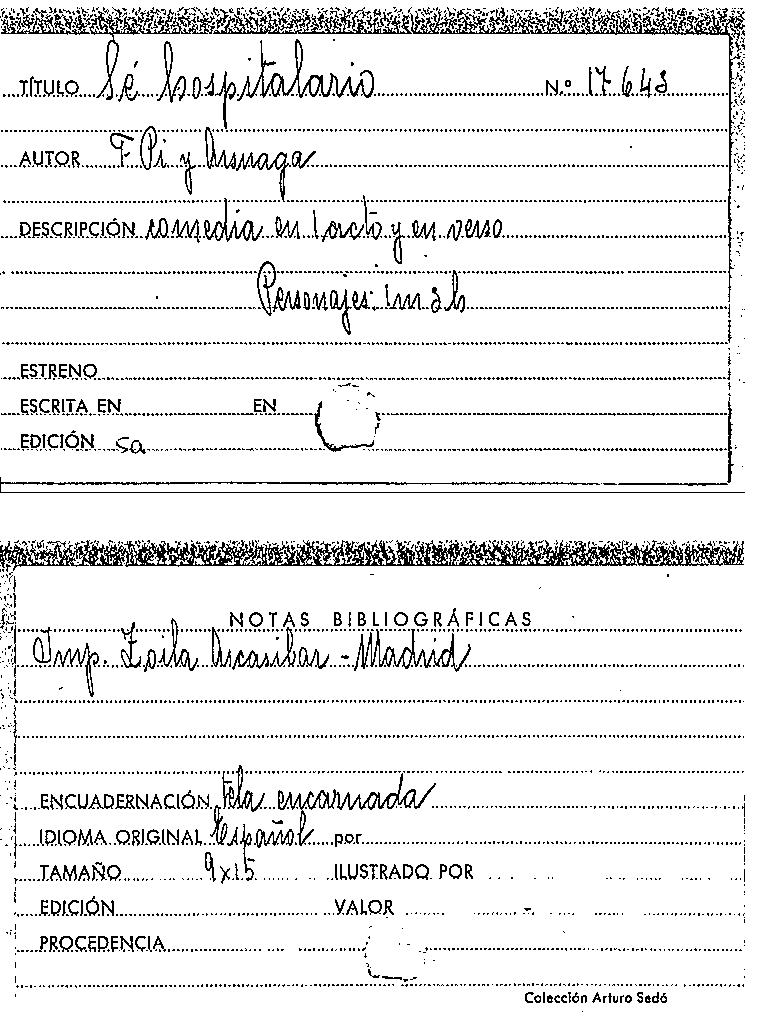 TÍTULO Sé hospitalario N.º 17643
AUTOR F Pi y Arsuaga
DESCRIPCIÓN comedia en 1 acto y en verso
Personajes: 1m 3h
ESTRENO
ESCRITA EN EN
EDICIÓN sa
NOTAS BIBLIOGRÁFICAS
Imp. Zoila Ascasibar - Madrid
ENCUADERNACIÓN tela encarnada
IDIOMA ORIGINAL Español por
TAMAÑO 9x15 ILUSTRADO POR
EDICIÓN VALOR
PROCEDENCIA
Colección Arturo Sedó